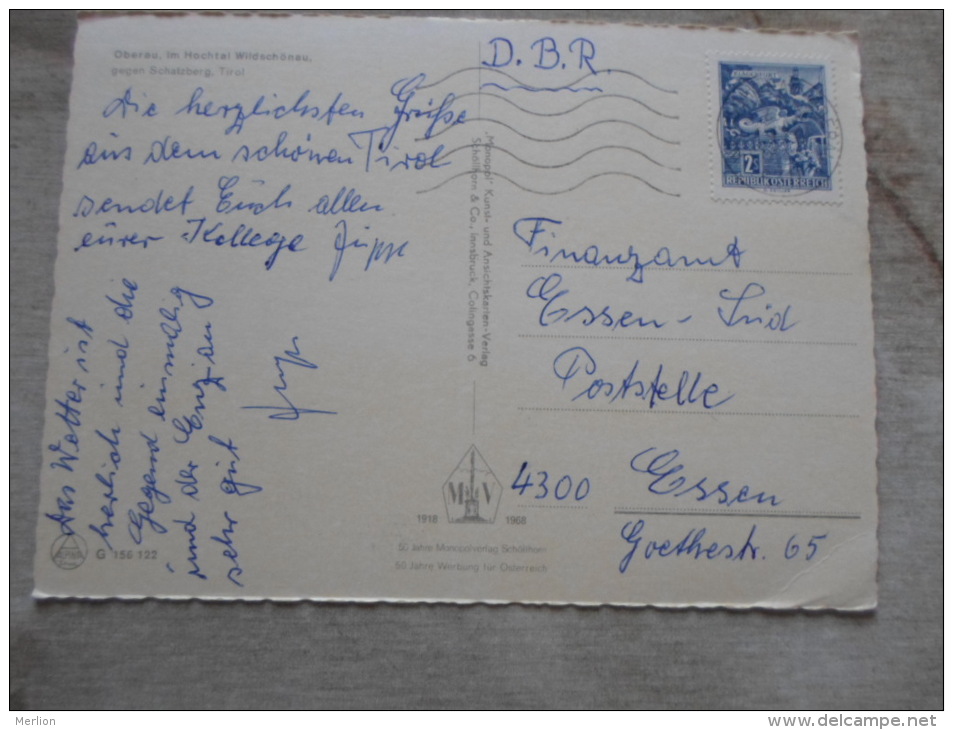 Oberau, im Hochtal Wildschönau,
gegen Schatzberg, Tirol
Die herzlichsten Grüße
aus dem schönen Tirol
sendet Euch allen
eurer Kollege Jupp
Das Wetter ist
herlich und die
Gegend einmalig
und der Enzian
sehr gut
Jupp
G 156 122
"Monopol" Kunst- und Ansichtskarten-Verlag
Schöllhorn & Co., Innsbruck, Colingasse 6
M V
1918 1968
50 Jahre Monopolverlag Schöllhorn
50 Jahre Werbung für Österreich
D.B.R.
2S
REPUBLIK ÖSTERREICH
Finanzamt
Essen-Süd
Poststelle
4300 Essen
Goethestr. 65
Merlion
www.delcampe.net